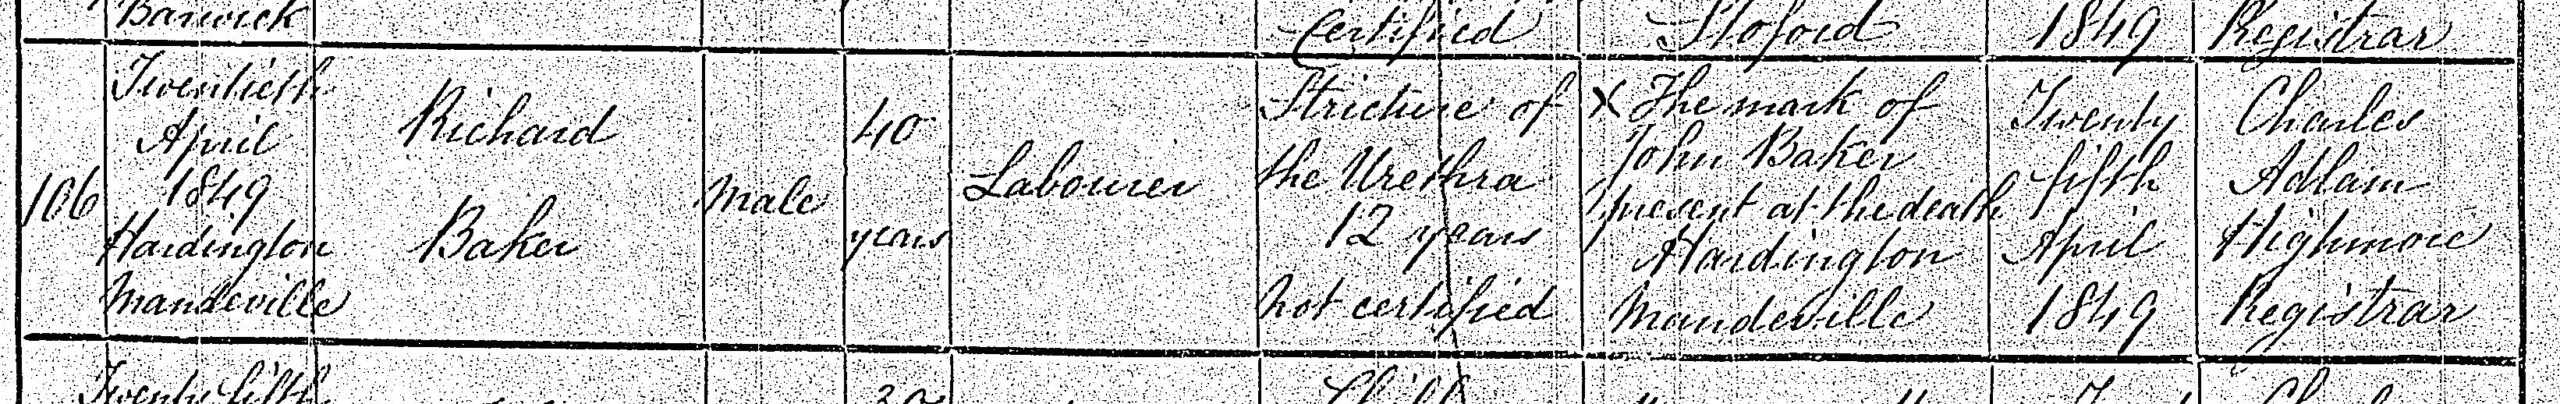 Barwick
Certified
Stoford
1849
Registrar
106
Twentieth
April
1849
Hardington
Mandeville
Richard
Baker
Male
40
years
Labourer
Stricture of
the Urethra
12 years
not certified
X The mark of
John Baker
present at the death
Hardington
Mandeville
Twenty
fifth
April
1849
Charles
Adlam
Highmore
Registrar
Twenty fifth